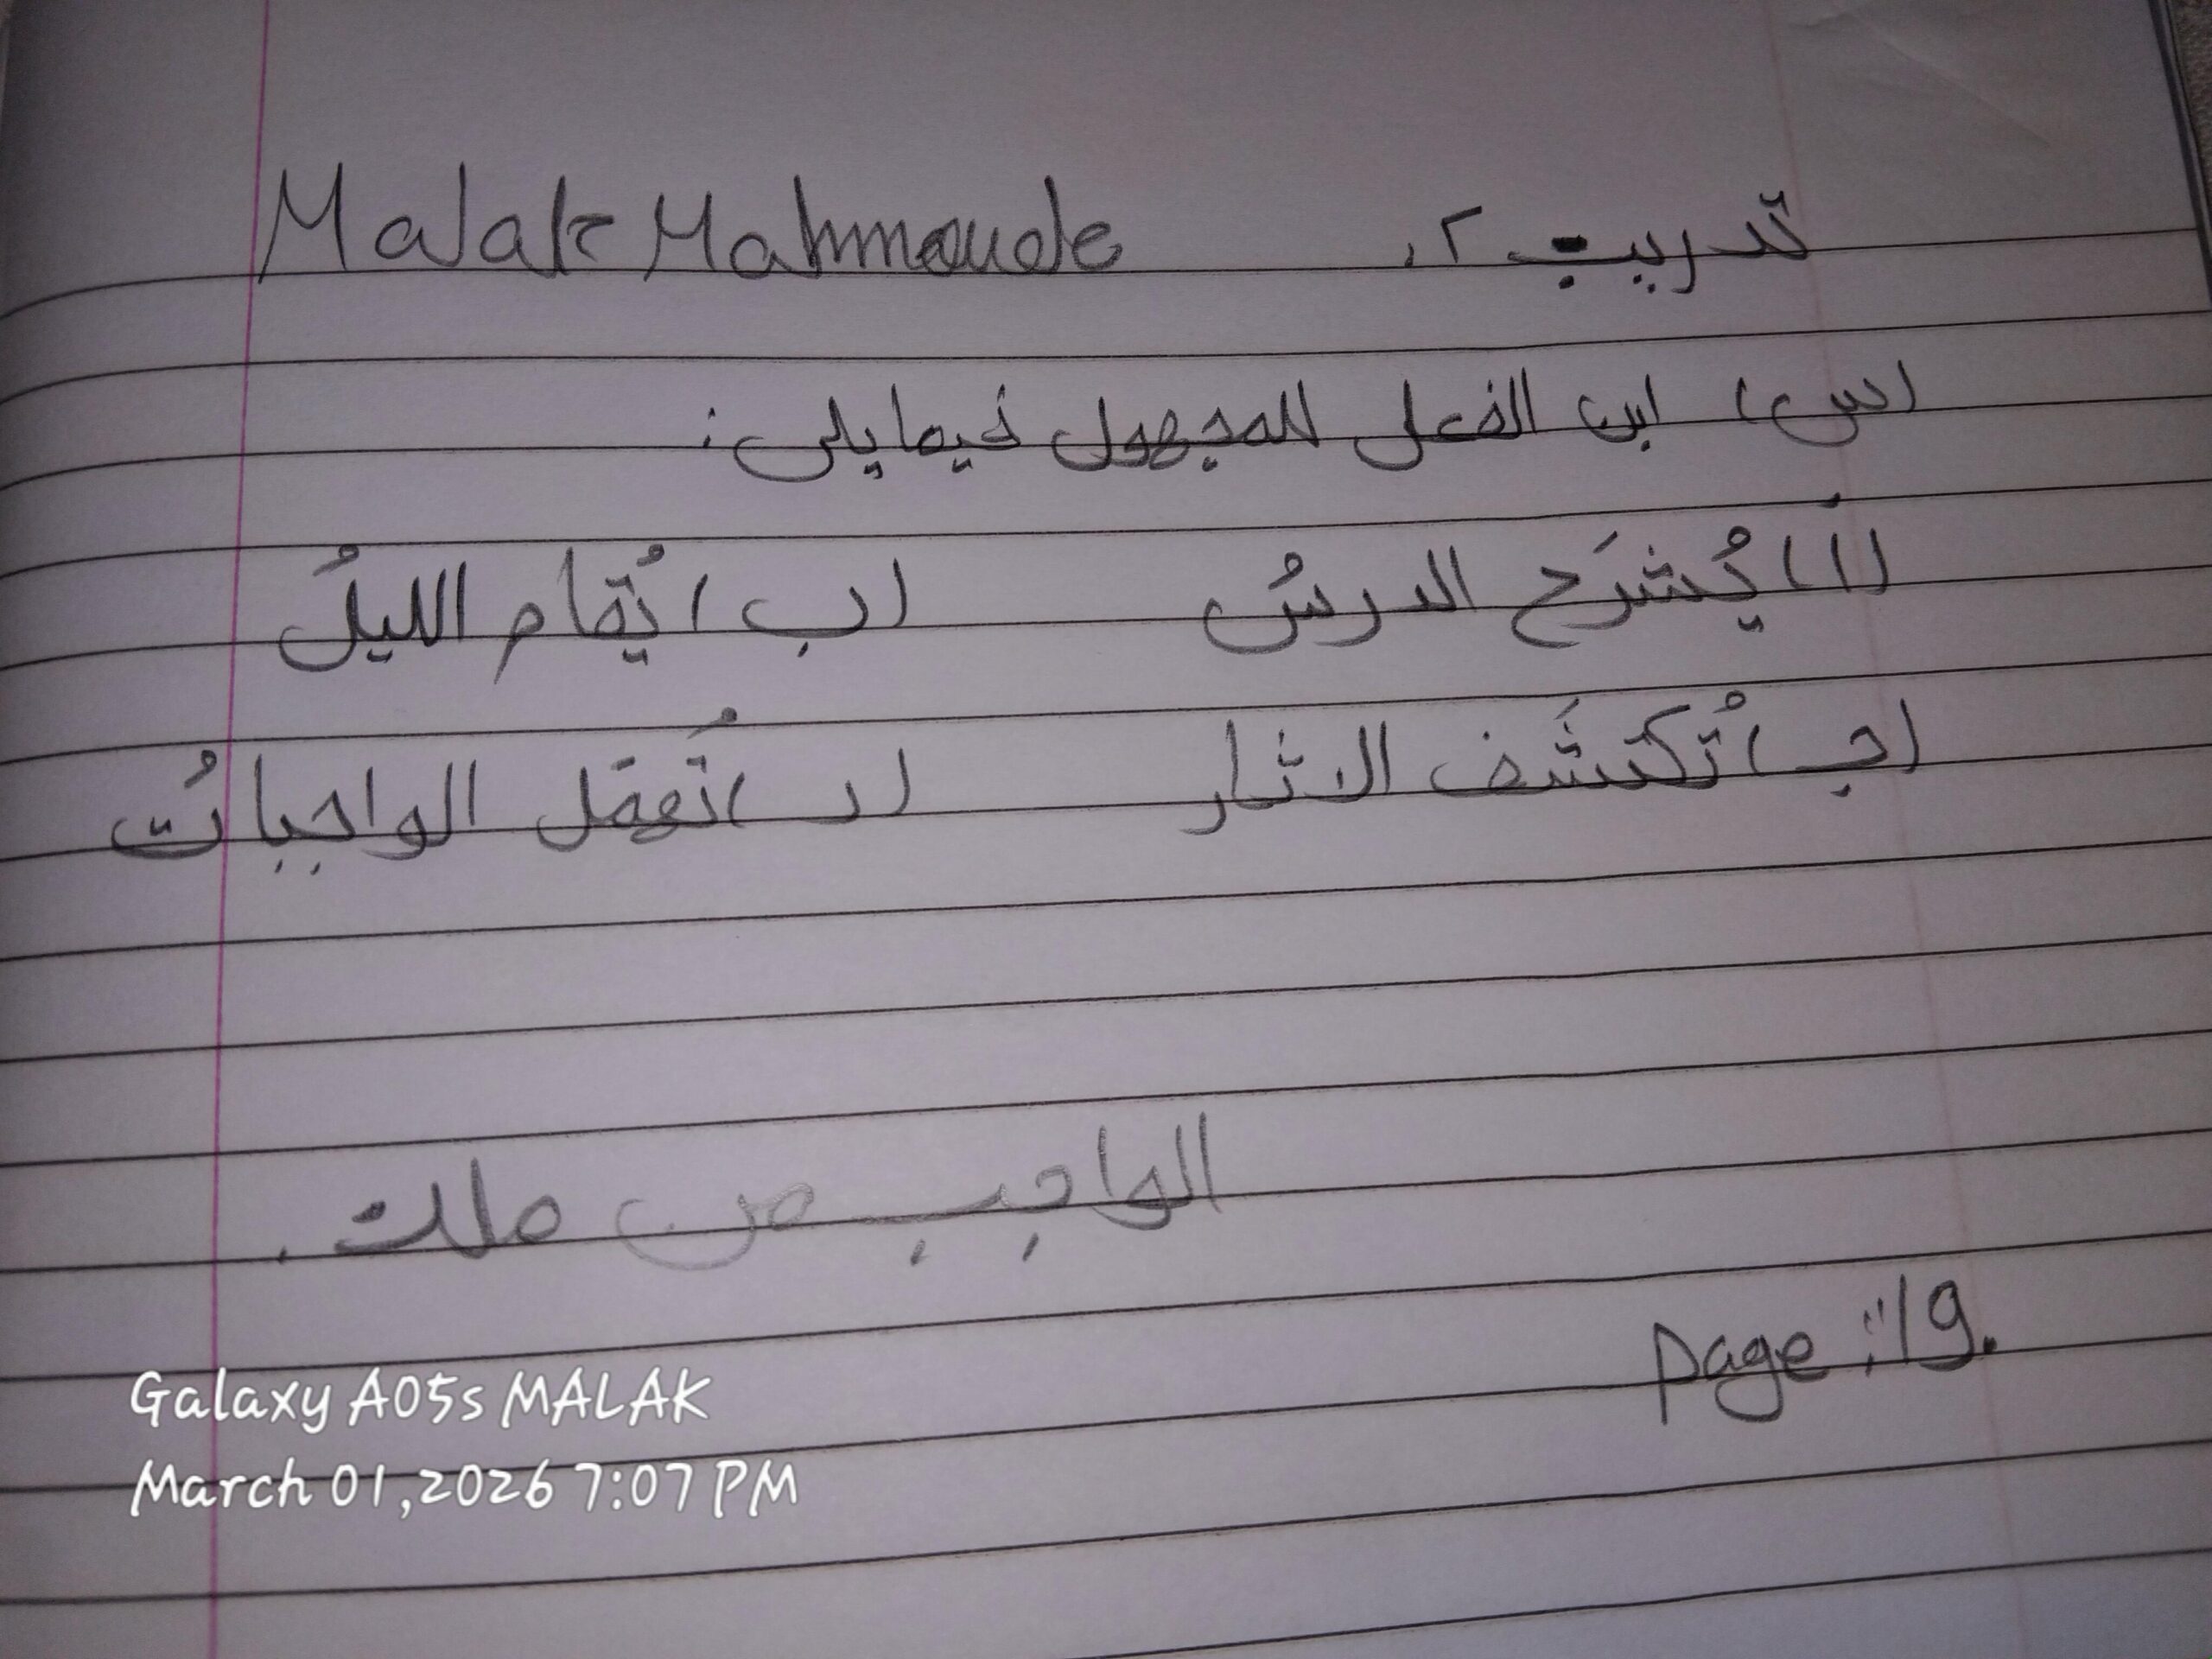 تدريب ٢. Malak Mahmoude
(س) ابن الفعل للمجهول فيما يلى:
(أ) يُشرَح الدرسُ (ب) يُقام الليلُ
(جـ) تُكتشَف الاثار (د) تُعمَل الواجباتُ
الواجب ص ملك.
page :19.
Galaxy A05s MALAK
March 01,2026 7:07 PM